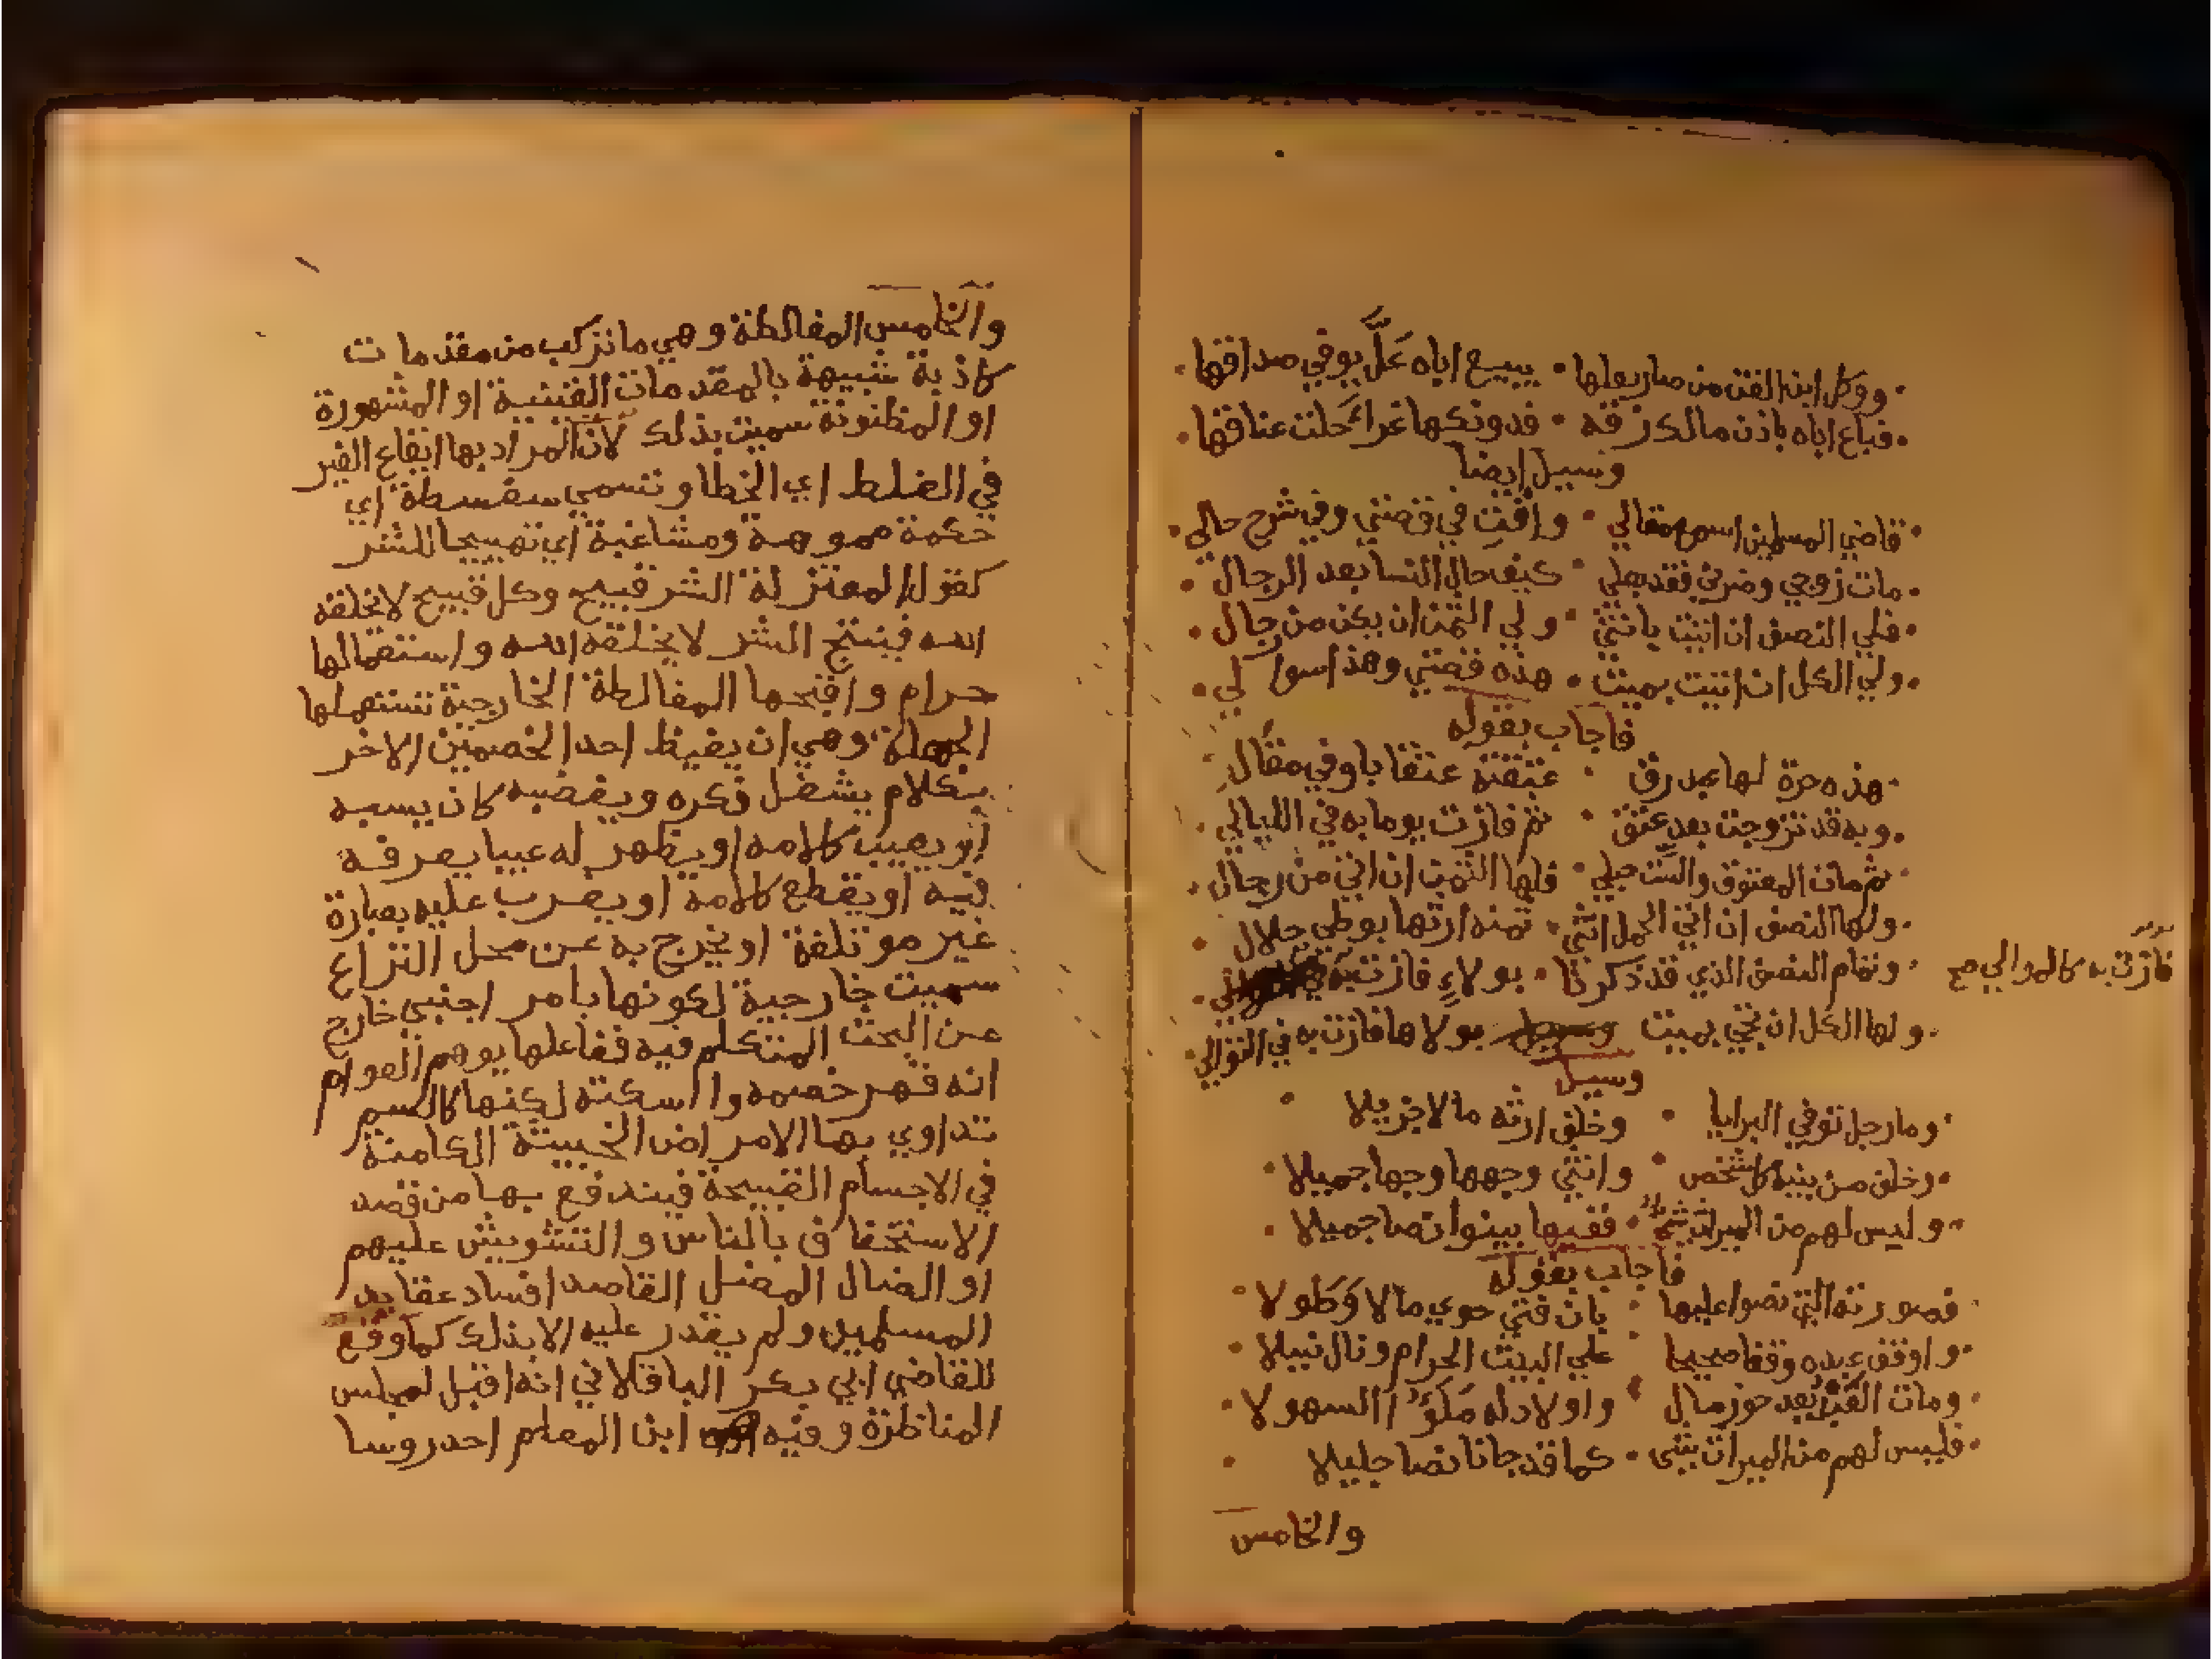 ووكل ابن الفتى من صار بعلها • يبيع اباه عَلَّ يوفي صداقها
فباع اباه باذن مالك رزقه • فدونكها غراء حلت عناقها
وسيل ايضا
قاضي المسلمين اسمع مقالي • وافتِ في قصتي وفي شرح حالي
مات زوجي وضرني فقد بعلي • كيف حال النسا بعد الرجال
فلي النصف ان اتيت بانثي • ولي الثمن ان يكن من رجال
ولي الكل ان اتيت بميت • هذه قصتي وهذا سوا لي
فاجاب بقوله
هذه حرة لها عبد رق • عتقته عتقا باوفي مقال
وبه قد تزوجت بعد عتق • ثم فازت يوما به في الليالي
ثم مات المعتوق والست حبلي • فلها الثمن ان اتي من رجال
ولها النصف ان اتي الحمل انثي • ثمنه ارثها بوطي حلال
وتمام النصف الذي قد ذكرنا • بولاءِ فازت به
فازت به كالموالي صح
ولها الكل ان تجي بميت بولاها فازت به في التوالي
وسيل
وما رجل توفي البرايا • وخلف ارثه مالا جزيلا
وخلف من بنيه كل شخص • وانثي وجهها وجها جميلا
وليس لهم من الميراث شيءٌ • ففيها بينوا نصا جميلا
فاجاب بقوله
فصورته التي نصوا عليها • بان فتي حوي مالا وَطَولا
واوقف عبده وقفا صحيحا • علي البيت الحرام ونال نيلا
ومات القِنُّ بعد حوز مال • واولاد له مَلَكو السهولا
فليس لهم من الميراث شي • كما قد جانا نصا جليلا
والخامس
والخامس المغالطة وهي ما تركب من مقدمات
كاذبة شبيهة بالمقدمات القينية او المشهورة
او المظنونة سميت بذلك لان المراد بها ايقاع الغير
في الغلط اي الخطا وتسمي سفسطة اي
حكمة مموهة ومشاغبة اي تهييجا للشر
كقول المعتزلة الشر قبيح وكل قبيح لا يخلقه
الله فينتج الشر لا يخلقه الله واستعمالها
حرام واقبحها المغالطة الخارجية تستعملها
الجهلة وهي ان يغيظ احد الخصمين الاخر
بكلام يشغل فكره ويغضبه كان يسبه
او يعيب كلامه او يظهر له عيبا يعرفه
فيه او يقطع كلامه او يغرب عليه بعبارة
غير موتلفة او يخرج به عن محل النزاع
سميت خارجية لكونها بامر اجنبي خارج
عن البحث المتكلم فيه ففاعلها يوهم العوام
انه قهر خصمه واسكته لكنها كالسم
تداوي بها الامراض الخبيثة الكامنة
في الاجسام القبيحة فيندفع بها من قصد
الاستخفاف بالناس والتشويش عليهم
او الضال المضل القاصد افساد عقايد
المسلمين ولم يقدر عليه الا بذلك كما وقع
للقاضي ابي بكر الباقلاني انه اقبل لمجلس
المناظرة وفيه ابن المعلم احد روسا